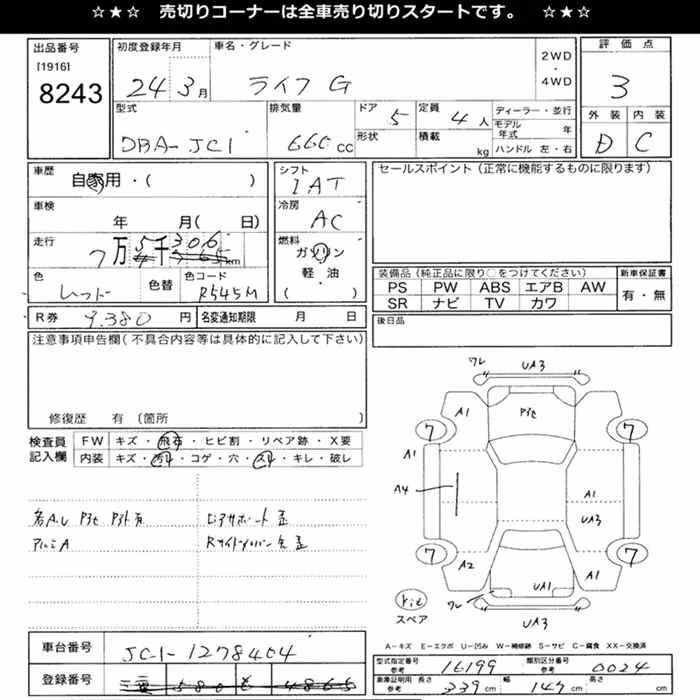 ☆★☆ 売切りコーナーは全車売り切りスタートです。 ☆★☆
出品番号
[1916]
8243
初度登録年月
24 3月
車名・グレード
ライフ G
2WD
・
4WD
評価点
3
外装 内装
D C
型式
DBA-JC1
排気量
660cc
ドア 5
形状
定員 4人
積載 kg
ディーラー・並行
モデル年式 年
ハンドル 左・右
車歴
自家用・( )
車検
年 月( 日)
走行
7万5千306km
色
レッド
色替
色コード
R545M
シフト
IAT
冷房
AC
燃料
ガソリン
軽油
( )
セールスポイント(正常に機能するものに限ります)
装備品(純正品に限り○をつけてください)
PS PW ABS エアB AW
SR ナビ TV カワ
新車保証書
有・無
後日品
R券 9.380円
名変通知期限 月 日
注意事項申告欄(不具合内容等は具体的に記入して下さい)
修復歴 有(箇所 )
検査員
記入欄
FW キズ・飛石・ヒビ割・リペア跡・X要
内装 キズ・汚れ・コゲ・穴・スレ・キレ・破レ
アルミA
ワレ UA3
A1 Pit
7 7
A1
A4 A1
UA3
7 7
A2 UA1 A1
ワレ
UA3
スペア
A-キズ E-エクボ U-凹み W-補修跡 S-サビ C-腐食 XX-交換済
車台番号 JC1-1278404
登録番号
型式指定番号
参考
16199
類別区分番号
参考
0024
車庫証明用 長さ
参考
339cm
幅
参考
147cm
高さ
参考
cm